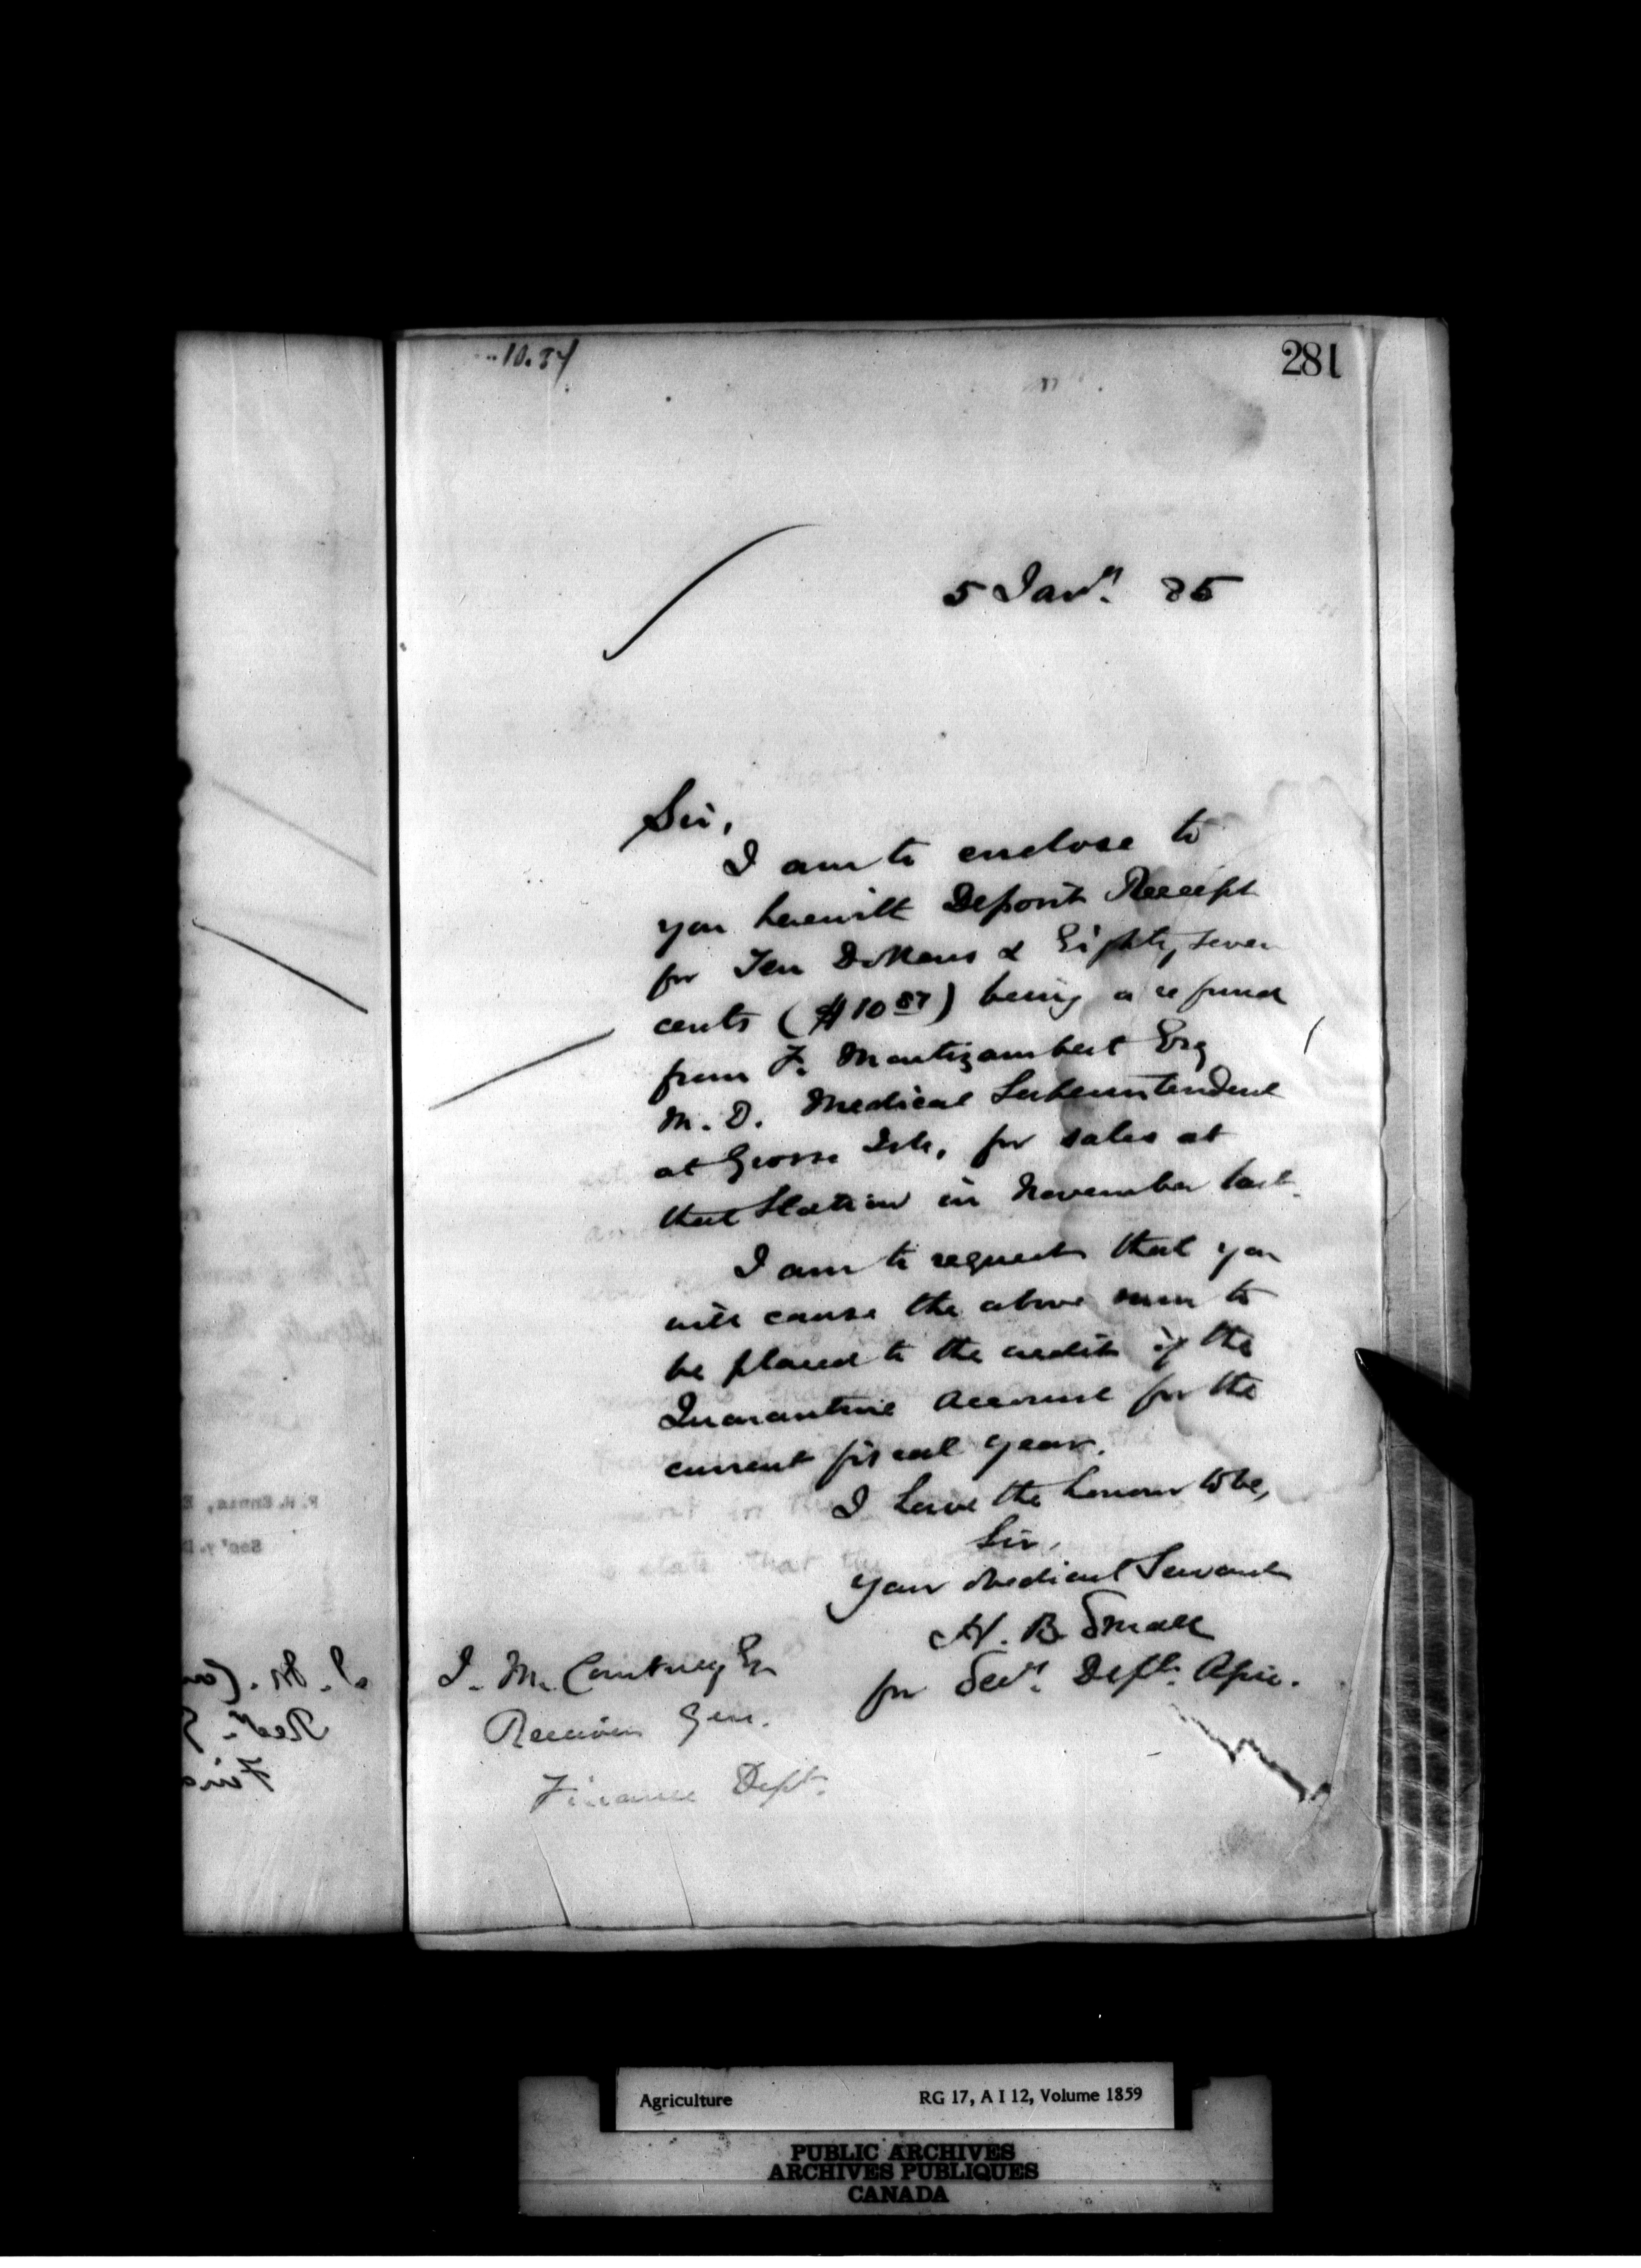 10.87
281
5 Jany. 85
Sir,
I am to enclose to
you herewith Deposit Receipt
for Ten Dollars & Eighty, seven
cents ($10 87) being a refund
from F. Montizambert Esq
M. D. Medical Superintendent
at Grosse Isle, for sales at
that Station in November last.
I am to request that you
will cause the above sum to
be placed to the credit of the
Quarantine Account for the
current fiscal year.
I have the honour to be,
Sir,
Your obedient Servant
H. B. Small
for Secy. Dept. Agric.
J. M. Courtney Esq
Receiver Gen.
Finance Dept.
Agriculture RG 17, A I 12, Volume 1859
PUBLIC ARCHIVES
ARCHIVES PUBLIQUES
CANADA